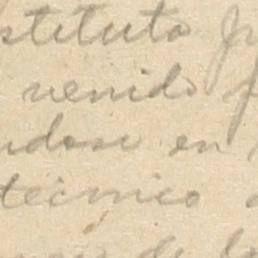 stituto p
venido
ndose en
técnico